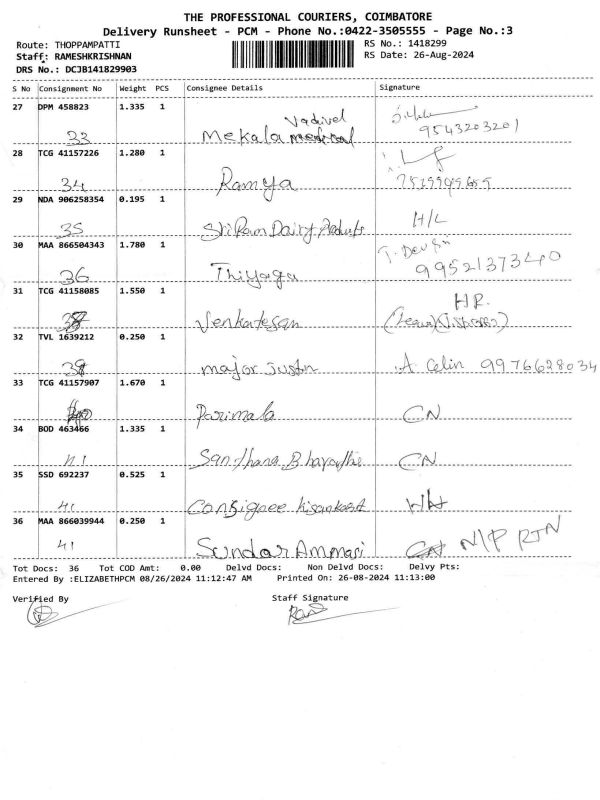 THE PROFESSIONAL COURIERS, COIMBATORE
Delivery Runsheet - PCM - Phone No.:0422-3505555 - Page No.:3
Route: THOPPAMPATTI RS No.: 1418299
Staff: RAMESHKRISHNAN RS Date: 26-Aug-2024
DRS No.: DCJB141829903
S No Consignment No Weight PCS Consignee Details Signature
27 DPM 458823 1.335 1
Vadivel
33 Mekala medical 9543203201
28 TCG 41157226 1.280 1
34 Ramya
29 NDA 906258354 0.195 1 H/L
35 Sri Ram Dairy Products
30 MAA 866504343 1.780 1 T. Devi
36 Thiyagu 9952137340
31 TCG 41158085 1.550 1 HR.
Venkatesan
32 TVL 1639212 0.250 1
38 major justin A. Celin 9976628034
33 TCG 41157907 1.670 1
Parimala CN
34 BOD 463466 1.335 1
Santhana Bharathi CN
35 SSD 692237 0.525 1
41 Consignee
36 MAA 866039944 0.250 1
41 Sundar Ammasi CN N/P RTN
Tot Docs: 36 Tot COD Amt: 0.00 Delvd Docs: Non Delvd Docs: Delvy Pts:
Entered By :ELIZABETHPCM 08/26/2024 11:12:47 AM Printed On: 26-08-2024 11:13:00
Verified By Staff Signature